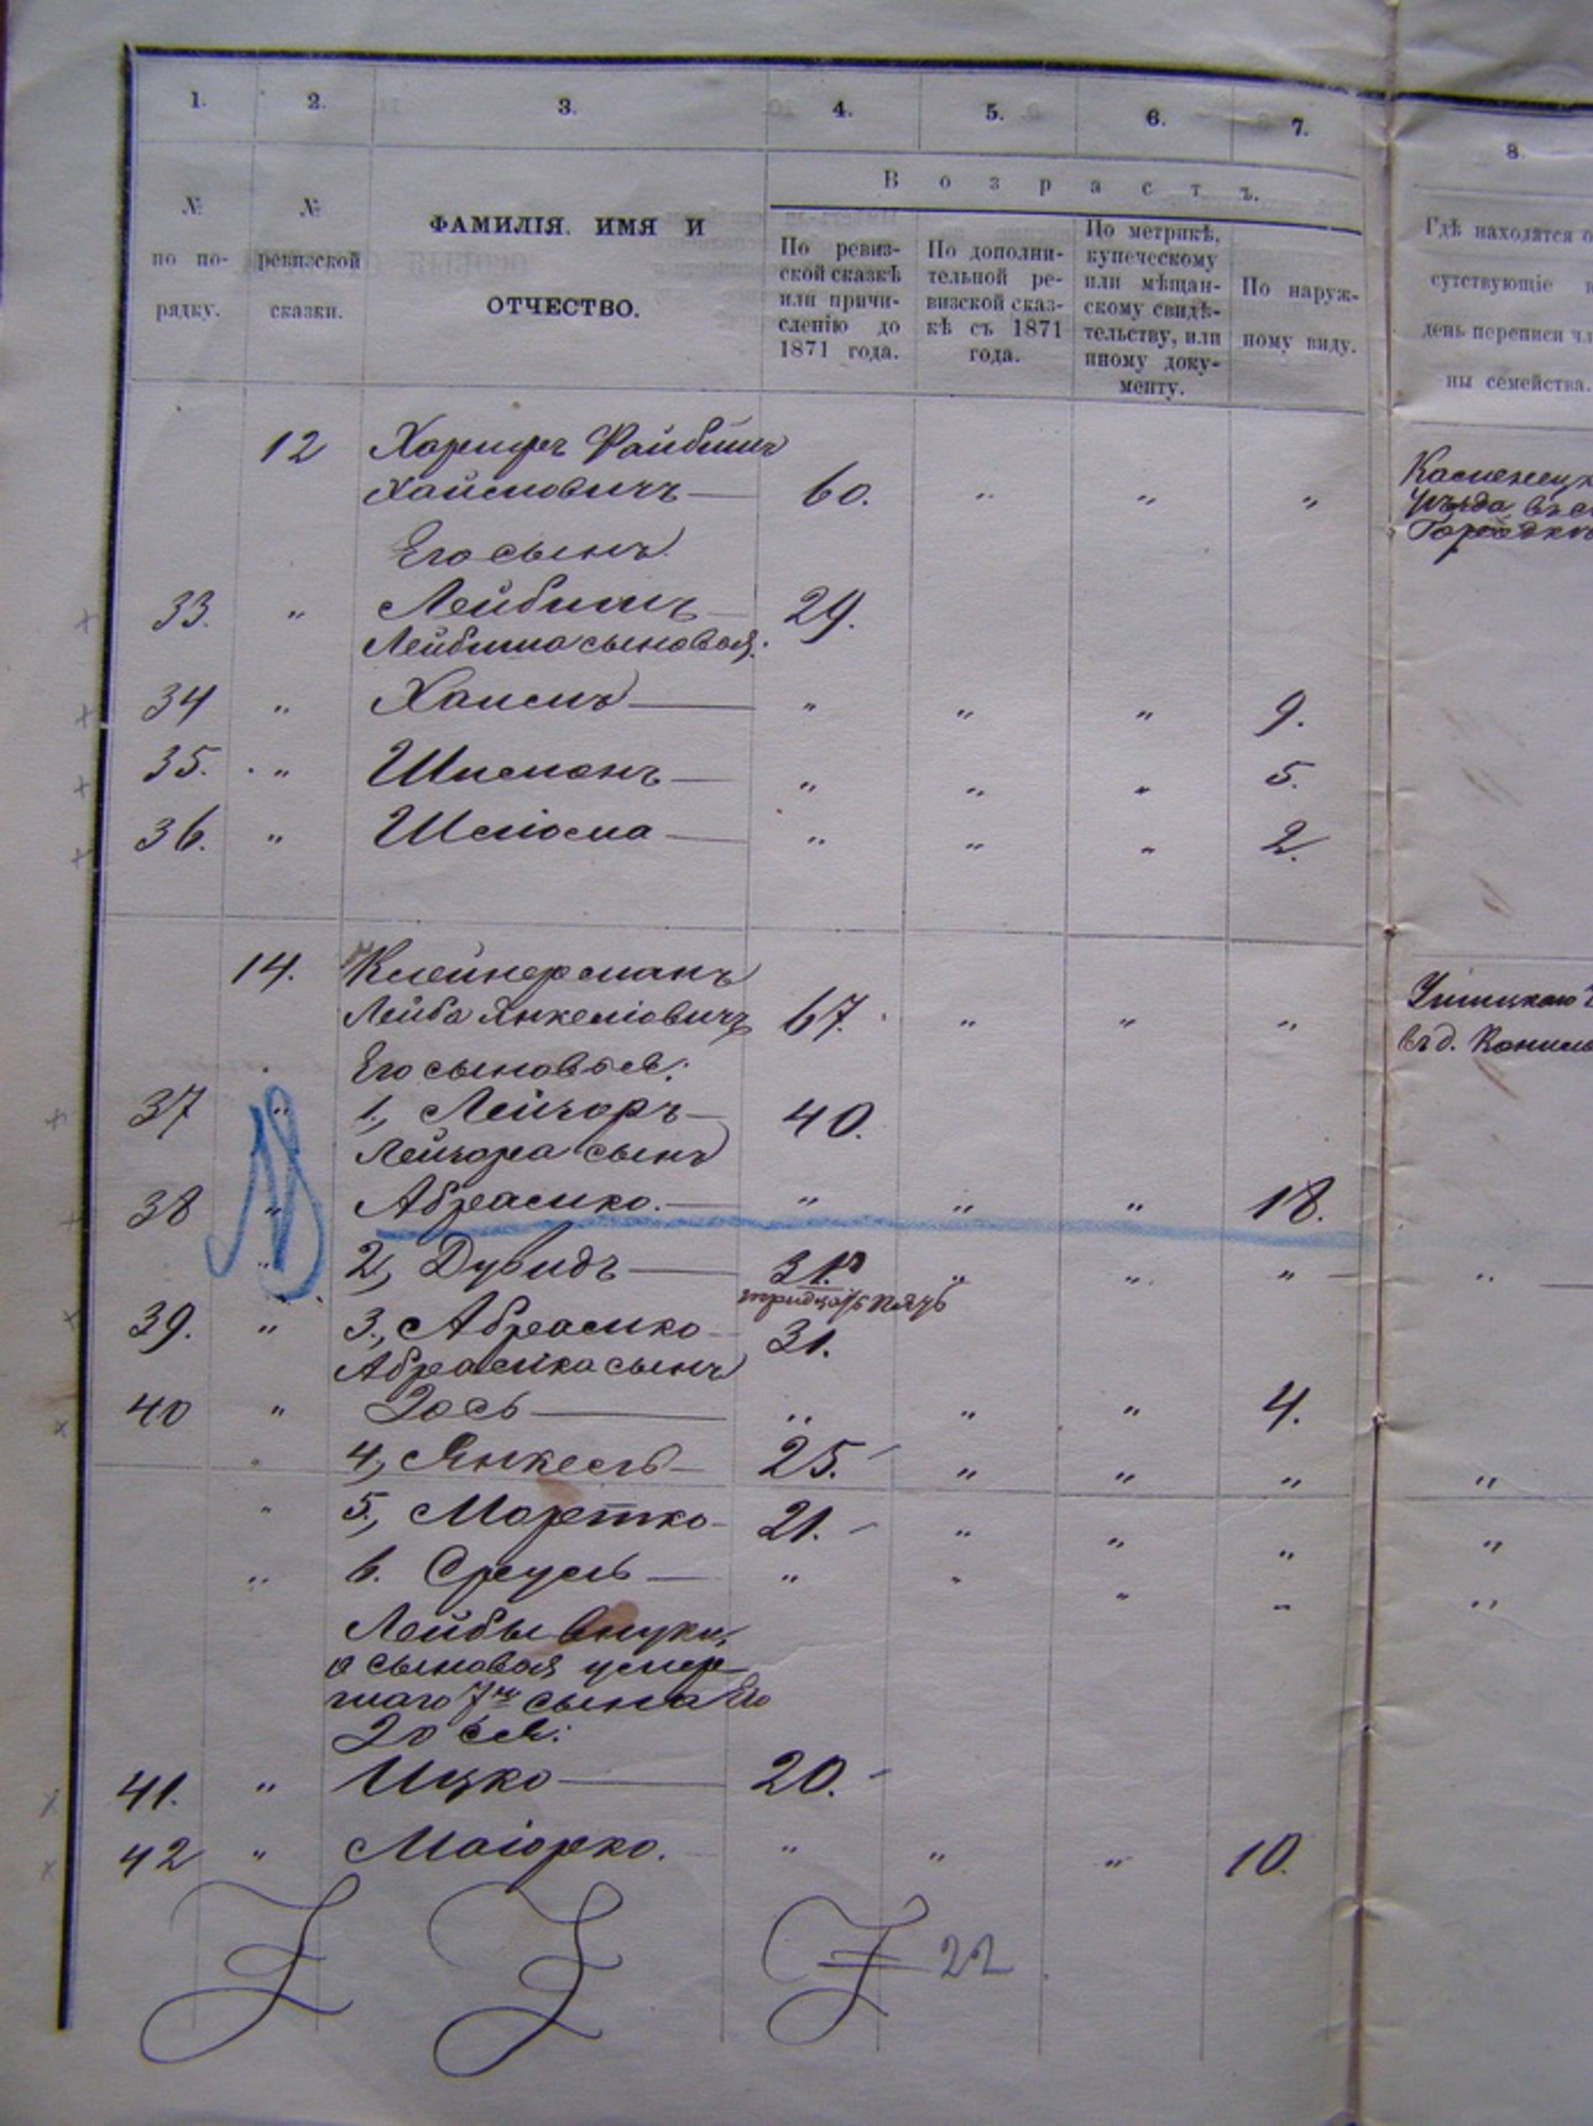 1. 2. 3. 4. 5. 6. 7. 8.
В о з р а с т ъ.
№ по по- рядку.
№ ревизской сказки.
ФАМИЛІЯ. ИМЯ И
ОТЧЕСТВО.
По ревиз-
ской сказкѣ
или причи-
сленію до
1871 года.
По дополни-
тельной ре-
визской сказ-
кѣ съ 1871
года.
По метрикѣ,
купеческому
или мѣщан-
скому свидѣ-
тельству, или
иному доку-
менту.
По наруж-
ному виду.
Гдѣ находятся о
сутствующіе в
день переписи чл
ны семейства.
12 Файбишъ
Хаимовичъ 60. " " "
Каменецк
уѣзда въ с
Городкѣ
Его сынъ
33. " Лейбишъ 29.
Лейбиша сыновья:
34 " Хаимъ " " " 9.
35. " Шимонъ " " " 5.
36. " Шліома " " " 2.
14. Клейнерманъ
Лейба Янкеліовичъ 67. " " "
Ушицкаго
въ д.
Его сыновья:
37 " 1, Лейзоръ 40.
Лейзора сынъ
38 " Абрамко. " " " 18.
" 2, Дувидъ 31. " " " "
тридцать пять
39. " 3., Абрамко 31.
Абрамка сынъ
40 " Іось " " " 4.
" 4, Янкель 25. " " " "
" 5, Мортко 21. " " " "
" 6. Сруль " " " " "
Лейбы внуки,
а сыновья умер-
шаго 7го сына его
41. " Ицко 20.
42 " Маіорко. " " " 10.
22